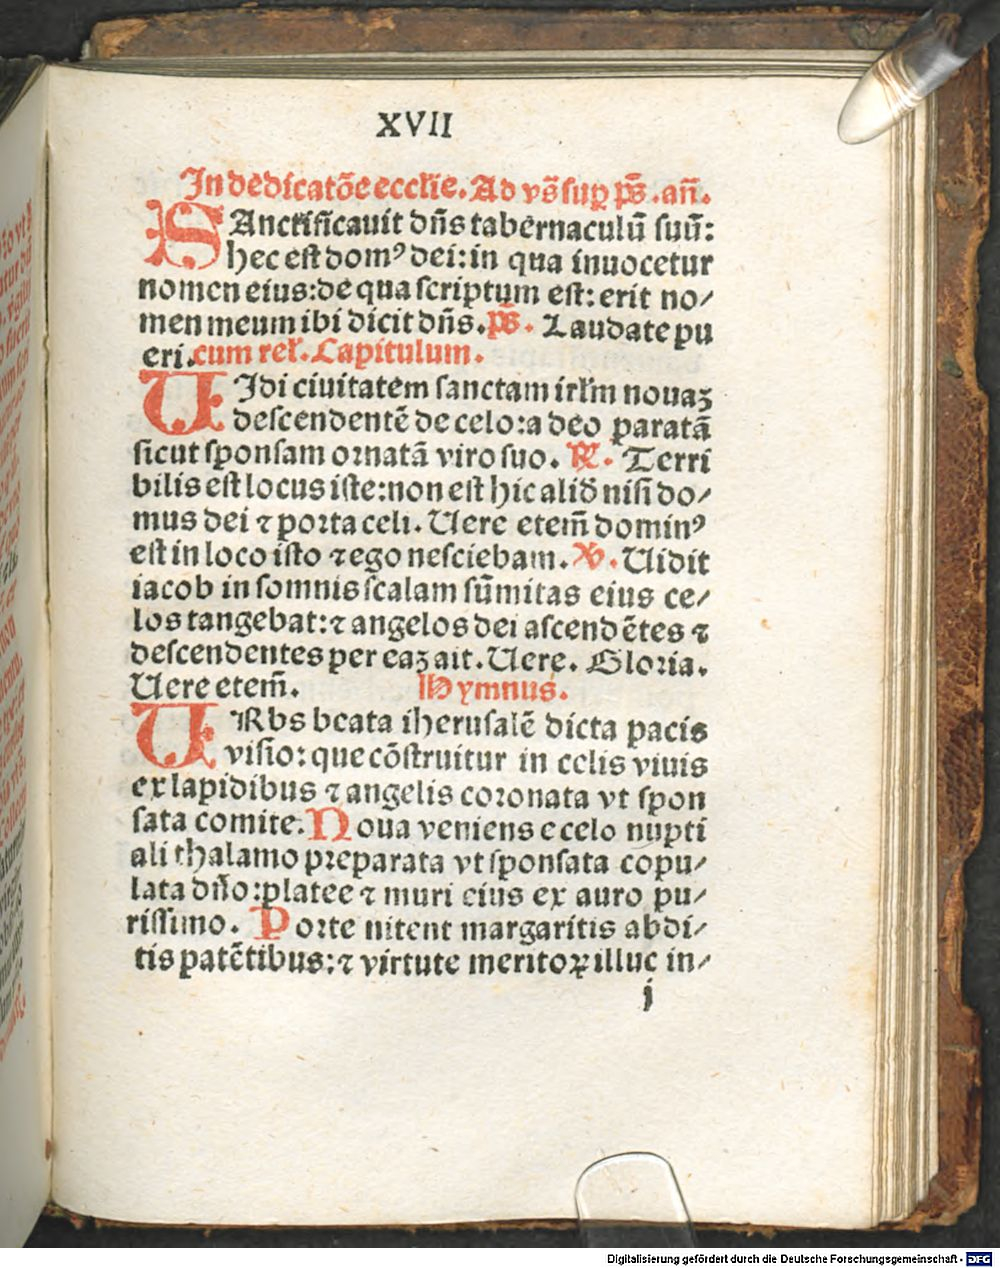 XVII
In dedicatõe ecclie. Ad vs̃ sup p̃s. añ.
SAnctificauit dñs tabernaculũ suũ:
hec est domꝰ dei: in qua inuocetur
nomen eius: de qua scriptum est: erit no⸗
men meum ibi dicit dñs. p̃s. Laudate pu
eri. cum rel. Capitulum.
UIdi ciuitatem sanctam irlm nouaꝫ
descendentẽ de celo: a deo paratã
sicut sponsam ornatã viro suo. ℞. Terri
bilis est locus iste: non est hic alid̃ nisi do⸗
mus dei ⁊ porta celi. Uere etem̃ dominꝰ
est in loco isto ⁊ ego nesciebam. ℣. Uidit
iacob in somnis scalam sũmitas eius ce⸗
los tangebat: ⁊ angelos dei ascendẽtes ⁊
descendentes per eaꝫ ait. Uere. Gloria.
Uere etem̃. Hymnus.
URbs beata iherusalẽ dicta pacis
visio: que cõstruitur in celis viuis
ex lapidibus ⁊ angelis coronata vt spon
sata comite. Noua veniens e celo nupti
ali thalamo preparata vt sponsata copu⸗
lata dño: platee ⁊ muri eius ex auro pu⸗
rissimo. Porte nitent margaritis abdi⸗
tis patẽtibus: ⁊ virtute meritoꝝ illuc in⸗
j
Digitalisierung gefördert durch die Deutsche Forschungsgemeinschaft - DFG